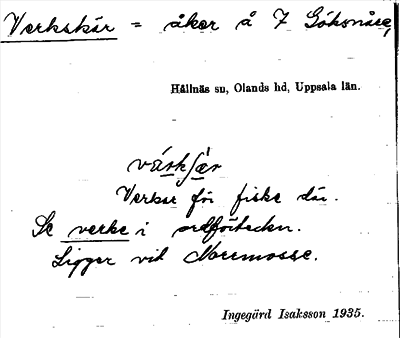 Verkskär = åker å 7 Göksnåre,
Hållnäs sn, Olands hd, Uppsala län.
Verkar för fiske där.
Se verke i ordförteckn.
Ligger vid Norrmosse.
Ingegärd Isaksson 1935.